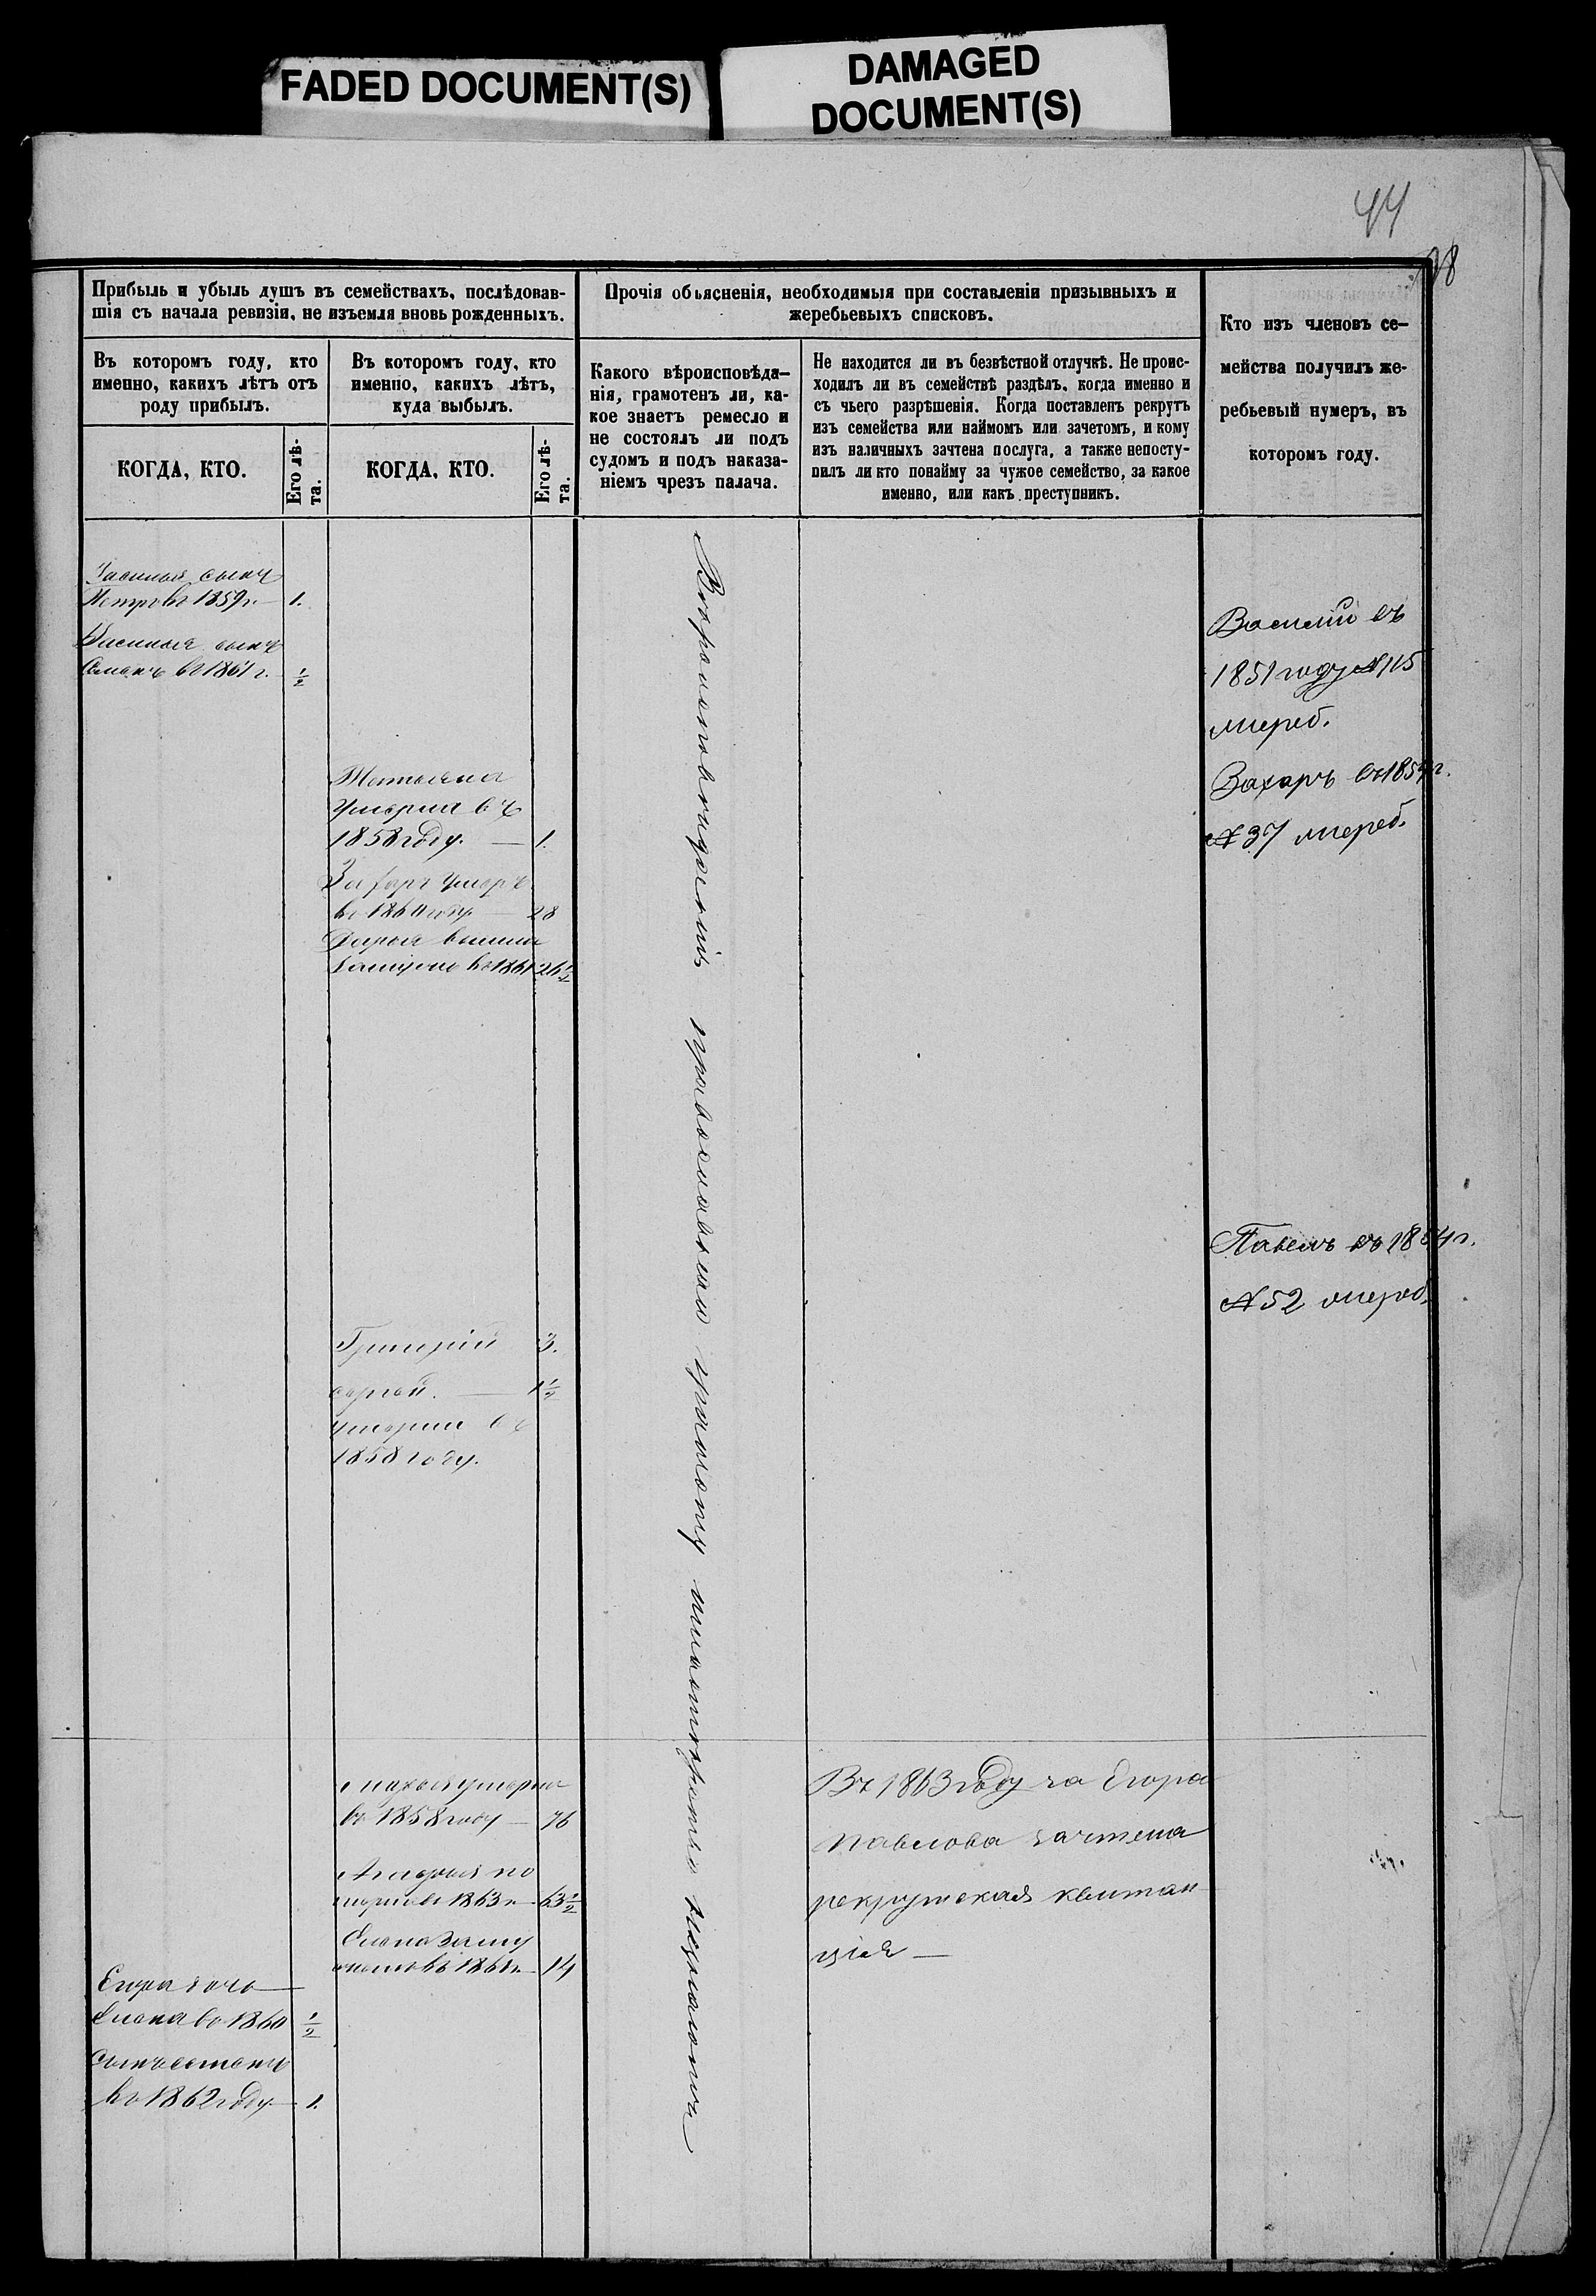 FADED DOCUMENT(S)
DAMAGED
DOCUMENT(S)
44
Прибыль и убыль душъ въ семействахъ, послѣдовав-
шія съ начала ревизіи, не изъемля вновь рожденныхъ.
Въ которомъ году, кто
именно, какихъ лѣтъ отъ
роду прибылъ.
КОГДА, КТО.
Его лѣ-
та.
Въ которомъ году, кто
именно, какихъ лѣтъ,
куда выбылъ.
КОГДА, КТО.
Его лѣ-
та.
Прочія объясненія, необходимыя при составленіи призывныхъ и
жеребьевыхъ списковъ.
Какого вѣроисповѣда-
нія, грамотенъ ли, ка-
кое знаетъ ремесло и
не состоялъ ли подъ
судомъ и подъ наказа-
ніемъ чрезъ палача.
Не находится ли въ безвѣстной отлучкѣ. Не проис-
ходилъ ли въ семействѣ раздѣлъ, когда именно и
съ чьего разрѣшенія. Когда поставленъ рекрутъ
изъ семейства или наймомъ или зачетомъ, и кому
изъ наличныхъ зачтена послуга, а также непосту-
пилъ ли кто понайму за чужое семейство, за какое
именно, или какъ преступникъ.
Кто изъ членовъ се-
мейства получилъ же-
ребьевый нумеръ, въ
которомъ году.
сынъ
Петръ въ 1859 г. — 1.
Василья сынъ
въ 1861 г. ½
Татьяна
Умерла въ
1858 году. — 1.
Захаръ умеръ
въ 1860 году — 28
Дарья вышла
въ 1861 26½
Григорій 3.
Сергѣй. — 1½
умерли въ
1858 году.
умерла
въ 1858 году — 76
въ 1863 г. 63½
Елена
14
Егора дочь
Елена въ 1860 ½
сынъ
въ 1862 году — 1.
Вѣроисповѣданія православнаго грамоту
Въ 1863 году за Егора
Павлова зачтена
рекрутская квитан
ція —
Василій въ
1851 году № 115
жереб.
Захаръ въ 1854 г.
№ 37 жереб.
Павелъ въ 1854 г.
№ 52 жереб.